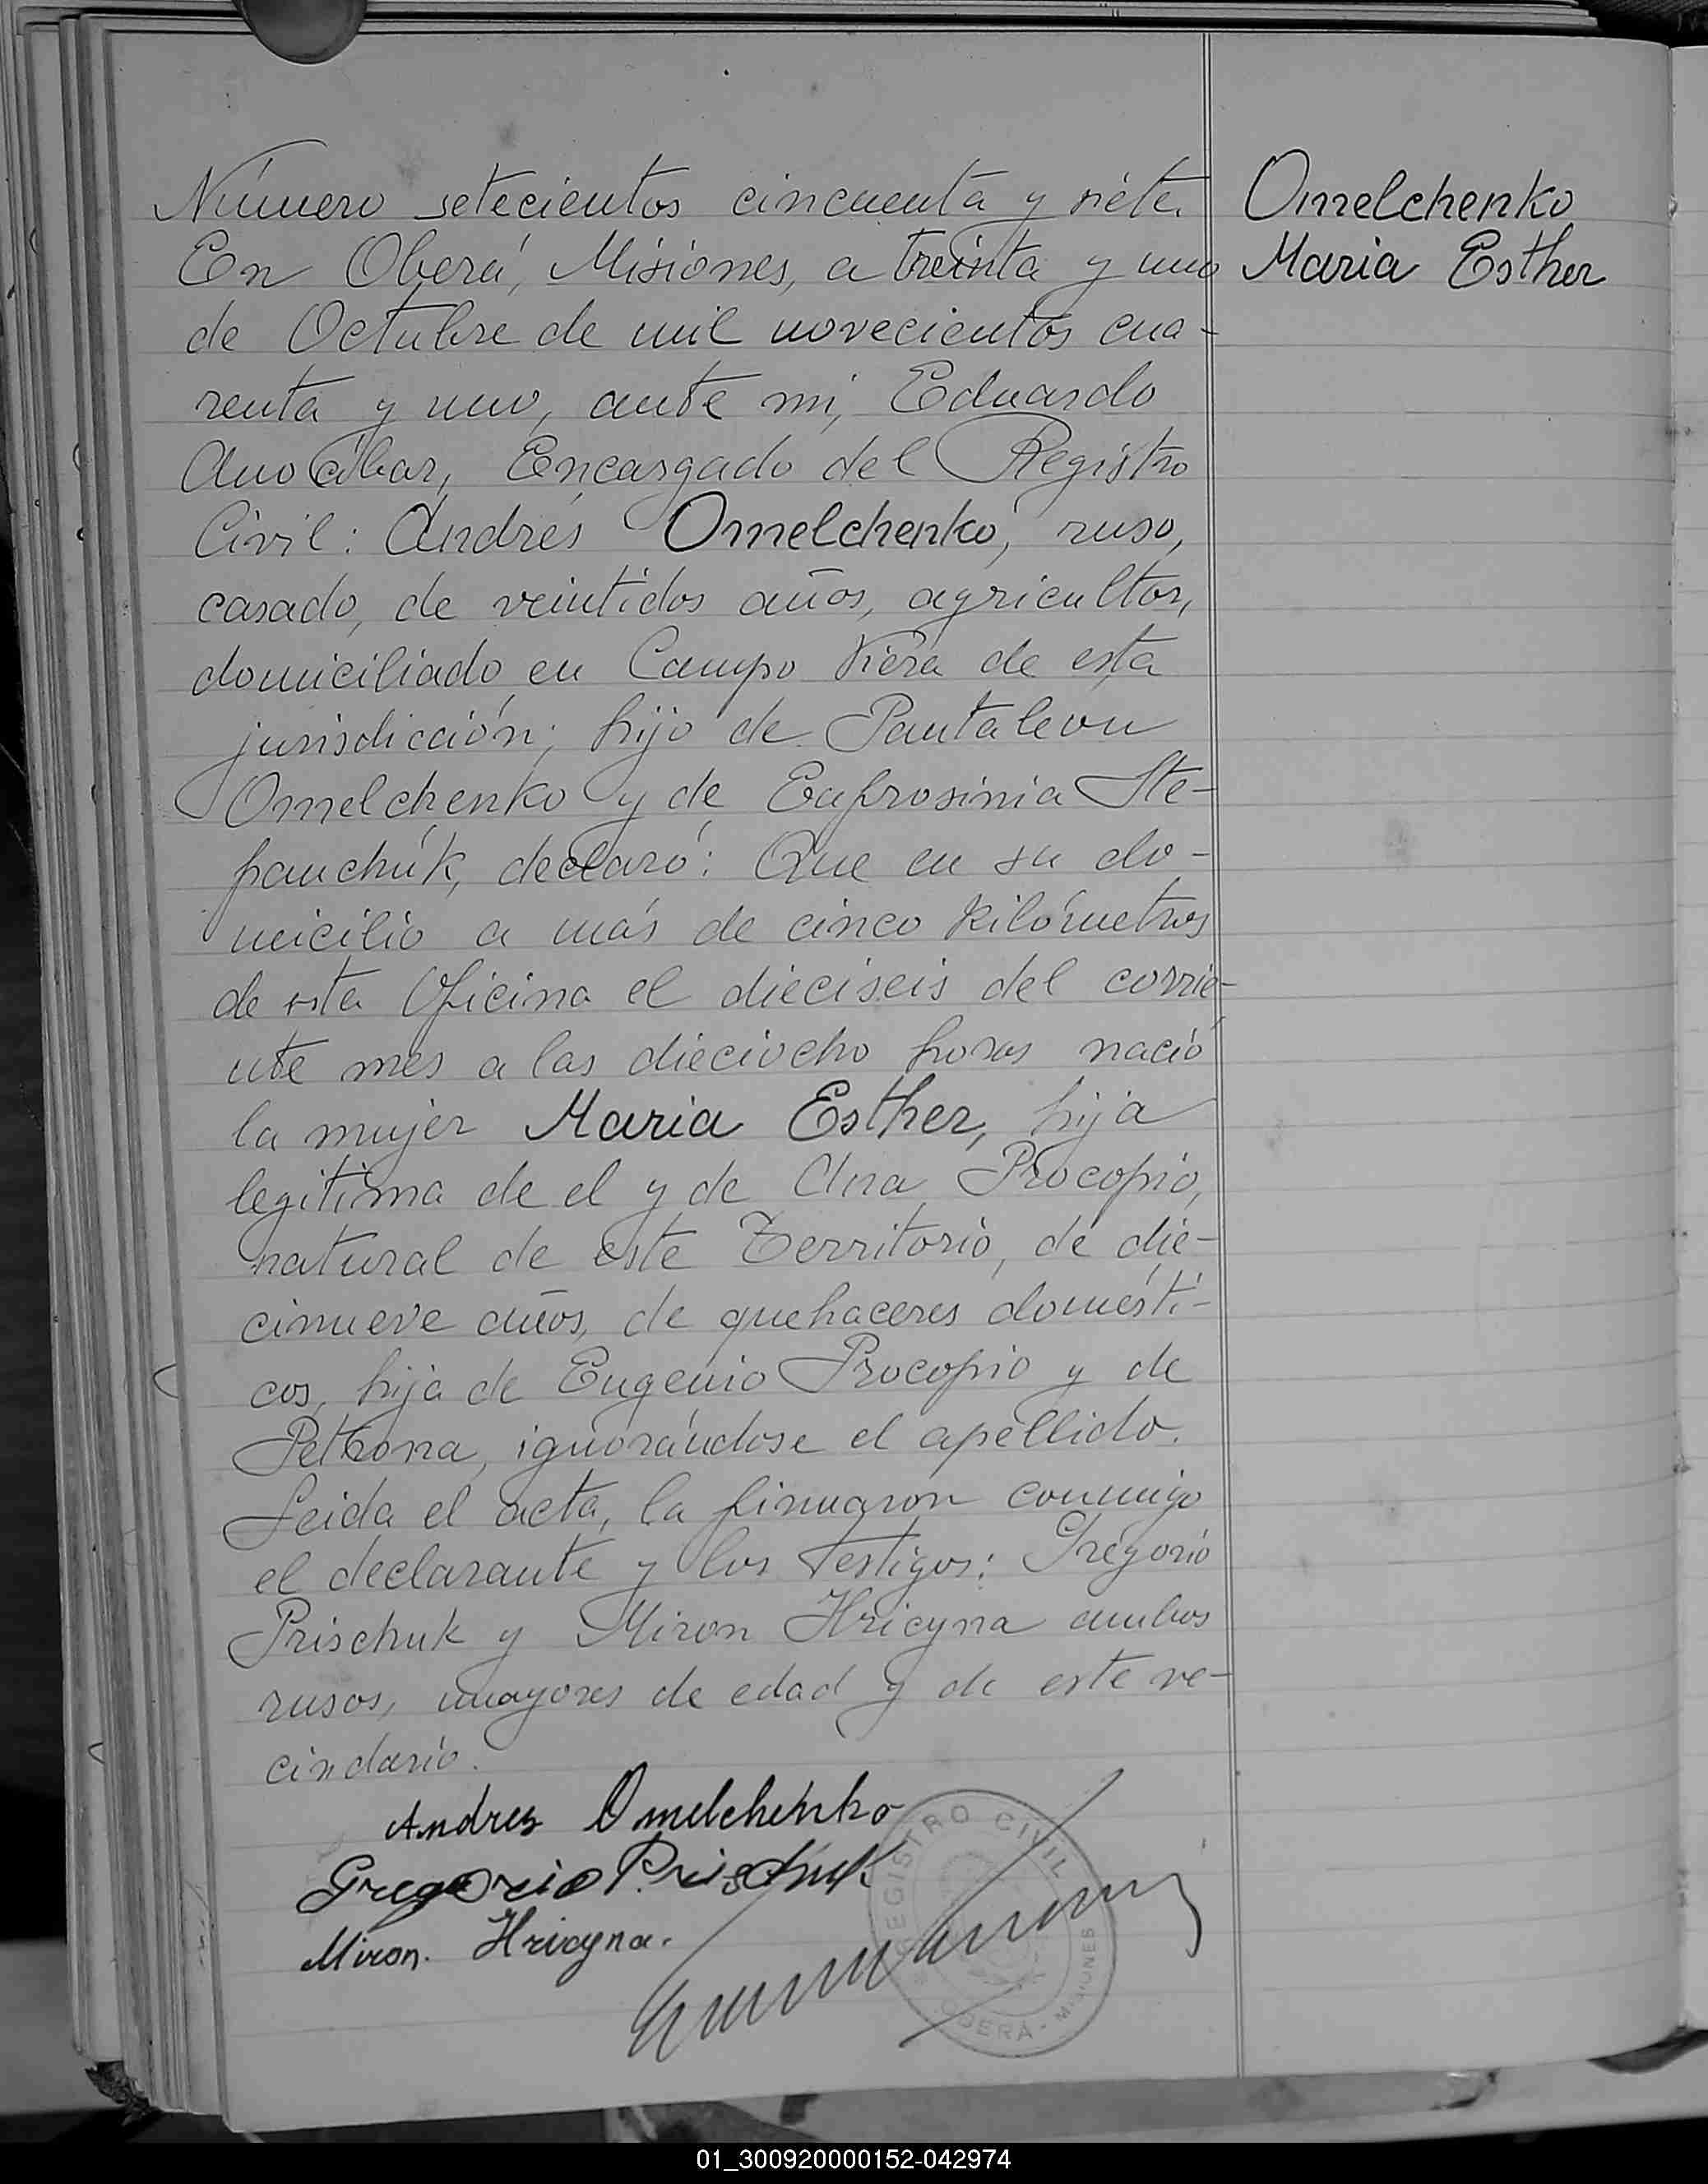 Número setecientos cincuenta y siete.
En Oberá, Misiones, a treinta y uno
de Octubre de mil novecientos cua-
renta y uno, ante mi, Eduardo
Anocíbar, Encargado del Registro
Civil: Andrés Omelchenko, ruso,
casado, de veintidos años, agricultor,
domiciliado en Campo Viera de esta
jurisdicción; hijo de Pantaleon
Omelchenko y de Eufrosinia Ste-
panchúk, declaró: Que en su do-
micilio a más de cinco kilómetros
de esta Oficina el dieciseis del corrie-
nte mes a las dieciocho horas nació
la mujer Maria Esther, hija
legitima de el y de Ana Procopio,
natural de este Territorio, de die-
cinueve años, de quehaceres domésti-
cos, hija de Eugenio Procopio y de
Petrona, ignorándose el apellido.
Leida el acta, la firmaron conmigo
el declarante y los testigos: Gregorio
Prischuk y Miron Hricyna ambos
rusos, mayores de edad y de este ve-
cindario.
Omelchenko
Maria Esther
Andres Omelchenko
Gregorio Prischuk
Miron. Hricyna.
REGISTRO CIVIL
OBERÁ - MISIONES
01_300920000152-042974